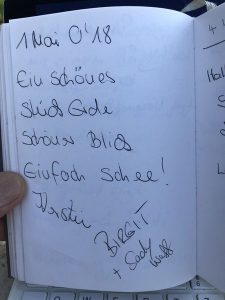 1 Mai 0'18
Ein schönes
Stück Erde
Schöner Blick
Einfach schee!
Kerstin
BIRGIT
+
4